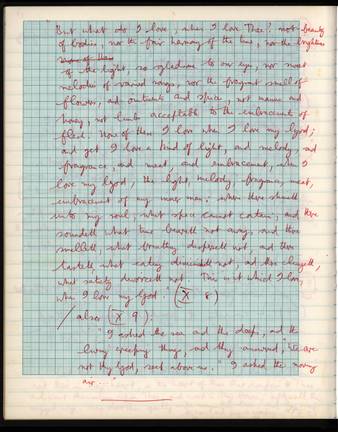 "But what do I love, when I love Thee? not beauty
of bodies, nor the fair harmony of time, nor the brightness
of the light, so gladsome to our eyes, nor sweet
melodies of varied songs, nor the fragrant smell of
flowers, and ointments and spices, not manna and
honey, not limbs acceptable to the embracements of
flesh. None of these I love when I love my God;
and yet I love a kind of light, and melody, and
fragrance, and meat, and embracement, when I
love my God, the light, melody, fragrance, meat,
embracement of my inner man: where there shineth
unto my soul, what space cannot contain, and there
soundeth what time beareth not away, and there
smelleth, what breathing disperseth not, and there
tasteth, what eating diminisheth not, and there clingeth,
what satiety divorceth not. This is it which I love,
when I love my God. (X 8)
/ also (X 9):
"I asked the sea and the deeps, and the
living creeping things, and they answered, "We are
not thy God, seek above us." I asked the moving
air..."